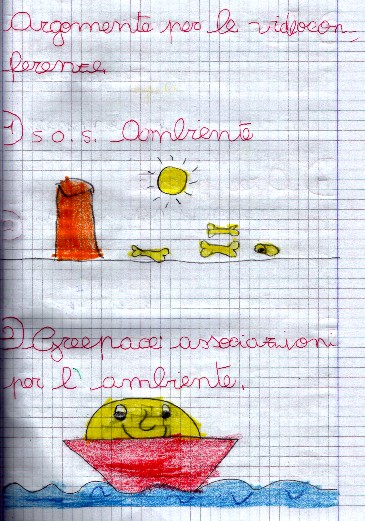 Argomente per le videocon_
ferenze.
1) s.o.s. Ambiente
2) Greepace associazioni
per l' ambiente.